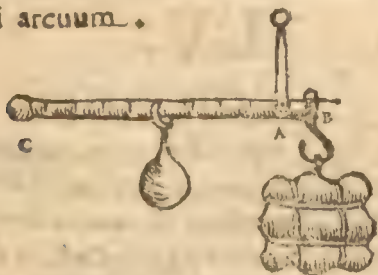 i arcuum.
A B
C